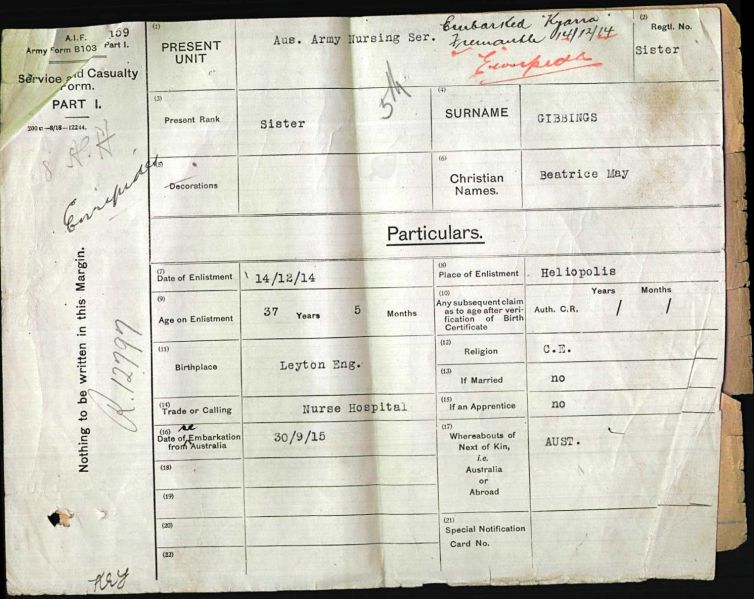 A.I.F. 159
Army Form B103 Part I.
Service and Casualty
Form.
PART I.
200 m—8/18—12244.
Euripides
Nothing to be written in this Margin.
(1)
PRESENT
UNIT
Aus. Army Nursing Ser.
Embarked "Kyarra"
Fremantle 14/12/14
Euripides
(2)
Regtl. No.
Sister
(3)
Present Rank
Sister
5th
(4)
SURNAME
GIBBINGS
(5)
Decorations
(6)
Christian
Names.
Beatrice May
Particulars.
(7)
Date of Enlistment
14/12/14
(8)
Place of Enlistment
Heliopolis
(9)
Age on Enlistment
37 Years 5 Months
(10)
Any subsequent claim
as to age after veri-
fication of Birth
Certificate
Years Months
Auth. C.R. / /
(11)
Birthplace
Leyton Eng.
(12)
Religion
C.E.
(13)
If Married
no
(14)
Trade or Calling
Nurse Hospital
(15)
If an Apprentice
no
(16)
Date of re Embarkation
from Australia
30/9/15
(17)
Whereabouts of
Next of Kin,
i.e.
Australia
or
Abroad
AUST.
(18)
(19)
(20)
(21)
Special Notification
Card No.
(22)